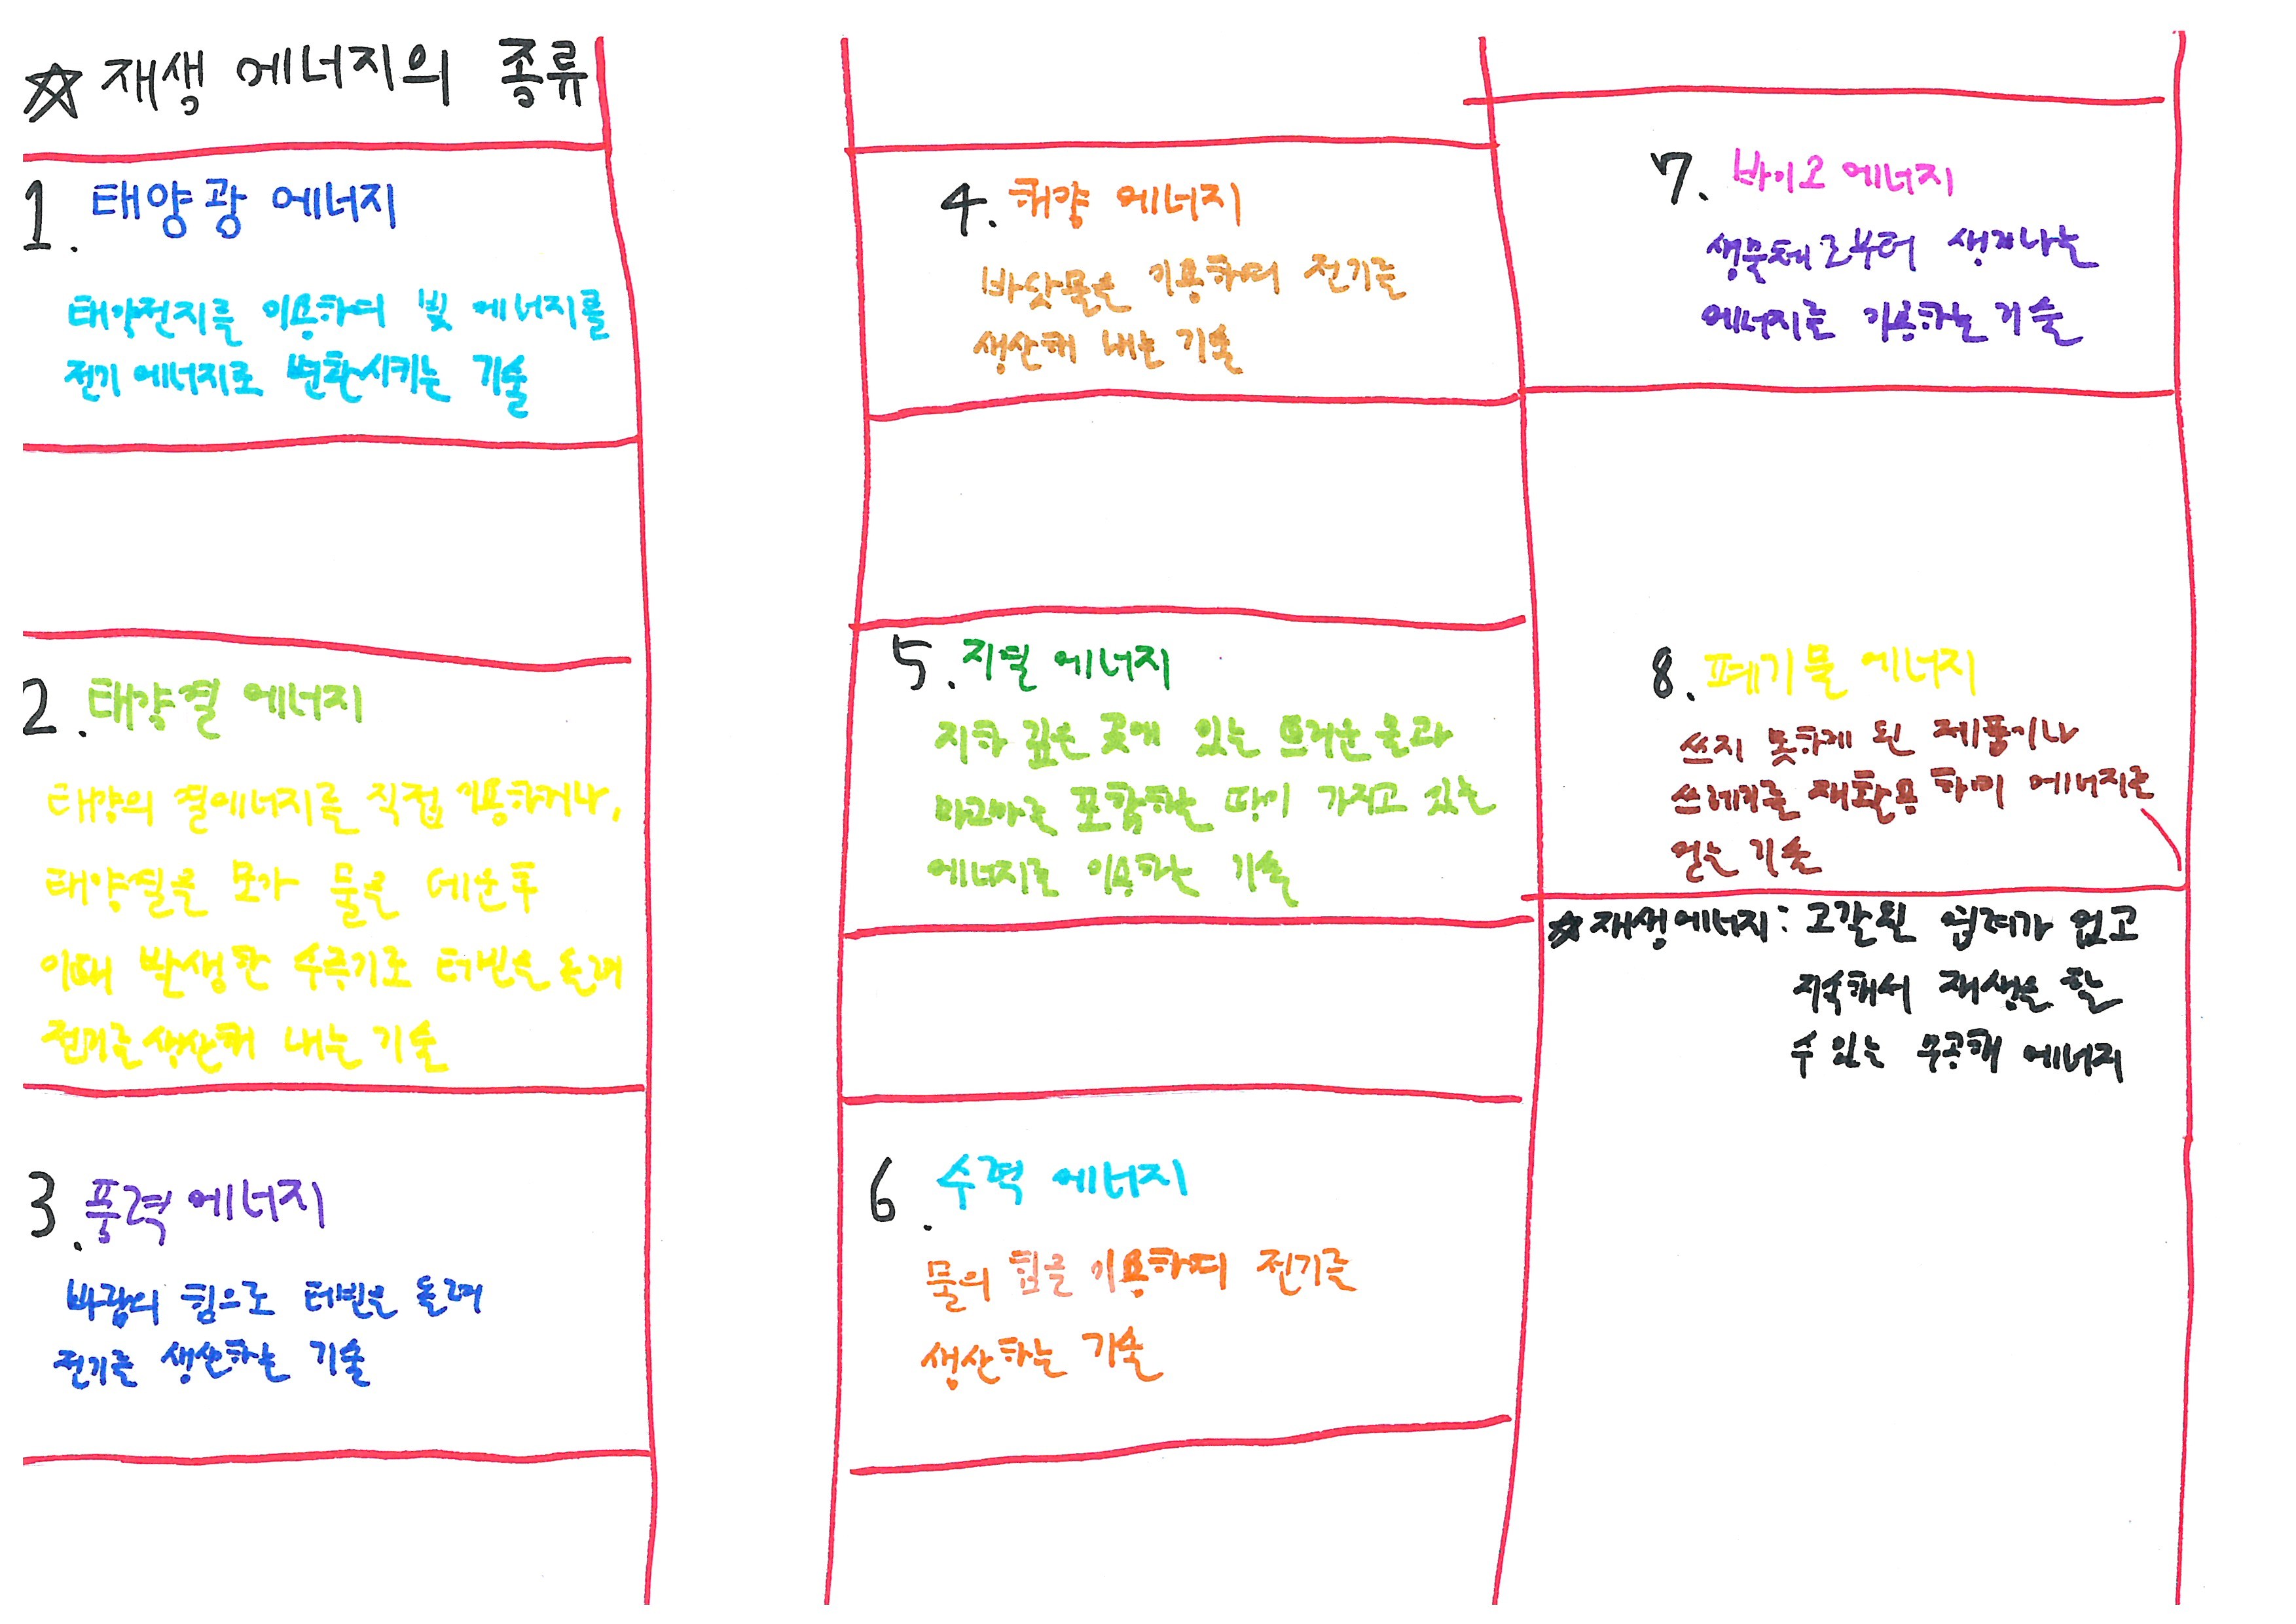 ☆ 재생 에너지의 종류
1. 태양광 에너지
태양전지를 이용하여 빛 에너지를
전기 에너지로 변환시키는 기술
2. 태양열 에너지
태양의 열에너지를 직접 이용하거나,
태양열을 모아 물을 데운후
이때 발생한 수증기로 터빈을 돌려
전기를 생산해 내는 기술
3. 풍력 에너지
바람의 힘으로 터빈을 돌려
전기를 생산하는 기술
4. 해양 에너지
바닷물을 이용하여 전기를
생산해 내는 기술
5. 지열 에너지
지하 깊은 곳에 있는 뜨거운 물과
마그마를 포함하는 땅이 가지고 있는
에너지를 이용하는 기술
6. 수력 에너지
물의 힘을 이용하여 전기를
생산하는 기술
7. 바이오 에너지
생물체로부터 생겨나는
에너지를 이용하는 기술
8. 폐기물 에너지
쓰지 못하게 된 제품이나
쓰레기를 재활용 하여 에너지를
얻는 기술
☆재생에너지: 고갈될 염려가 없고
지속해서 재생을 할
수 있는 무공해 에너지